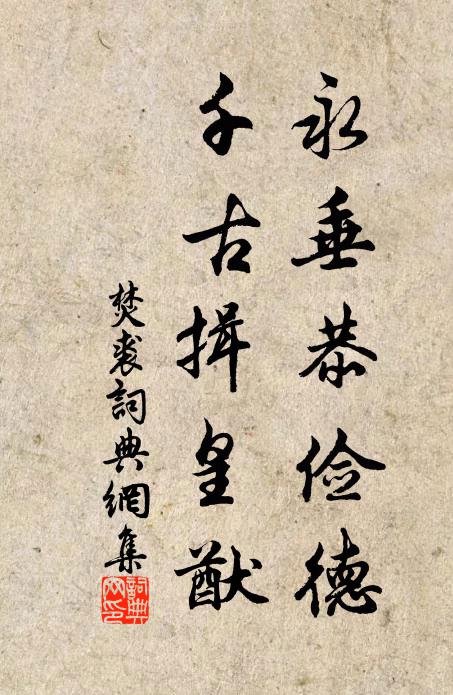 永垂恭俭德
千古揖皇猷
焚裘詞典網集
詞典网印